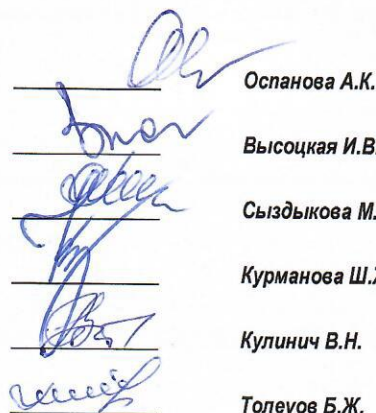 Оспанова А.К.
Высоцкая И.В.
Сыздыкова М.
Курманова Ш.
Кулинич В.Н.
Толеуов Б.Ж.